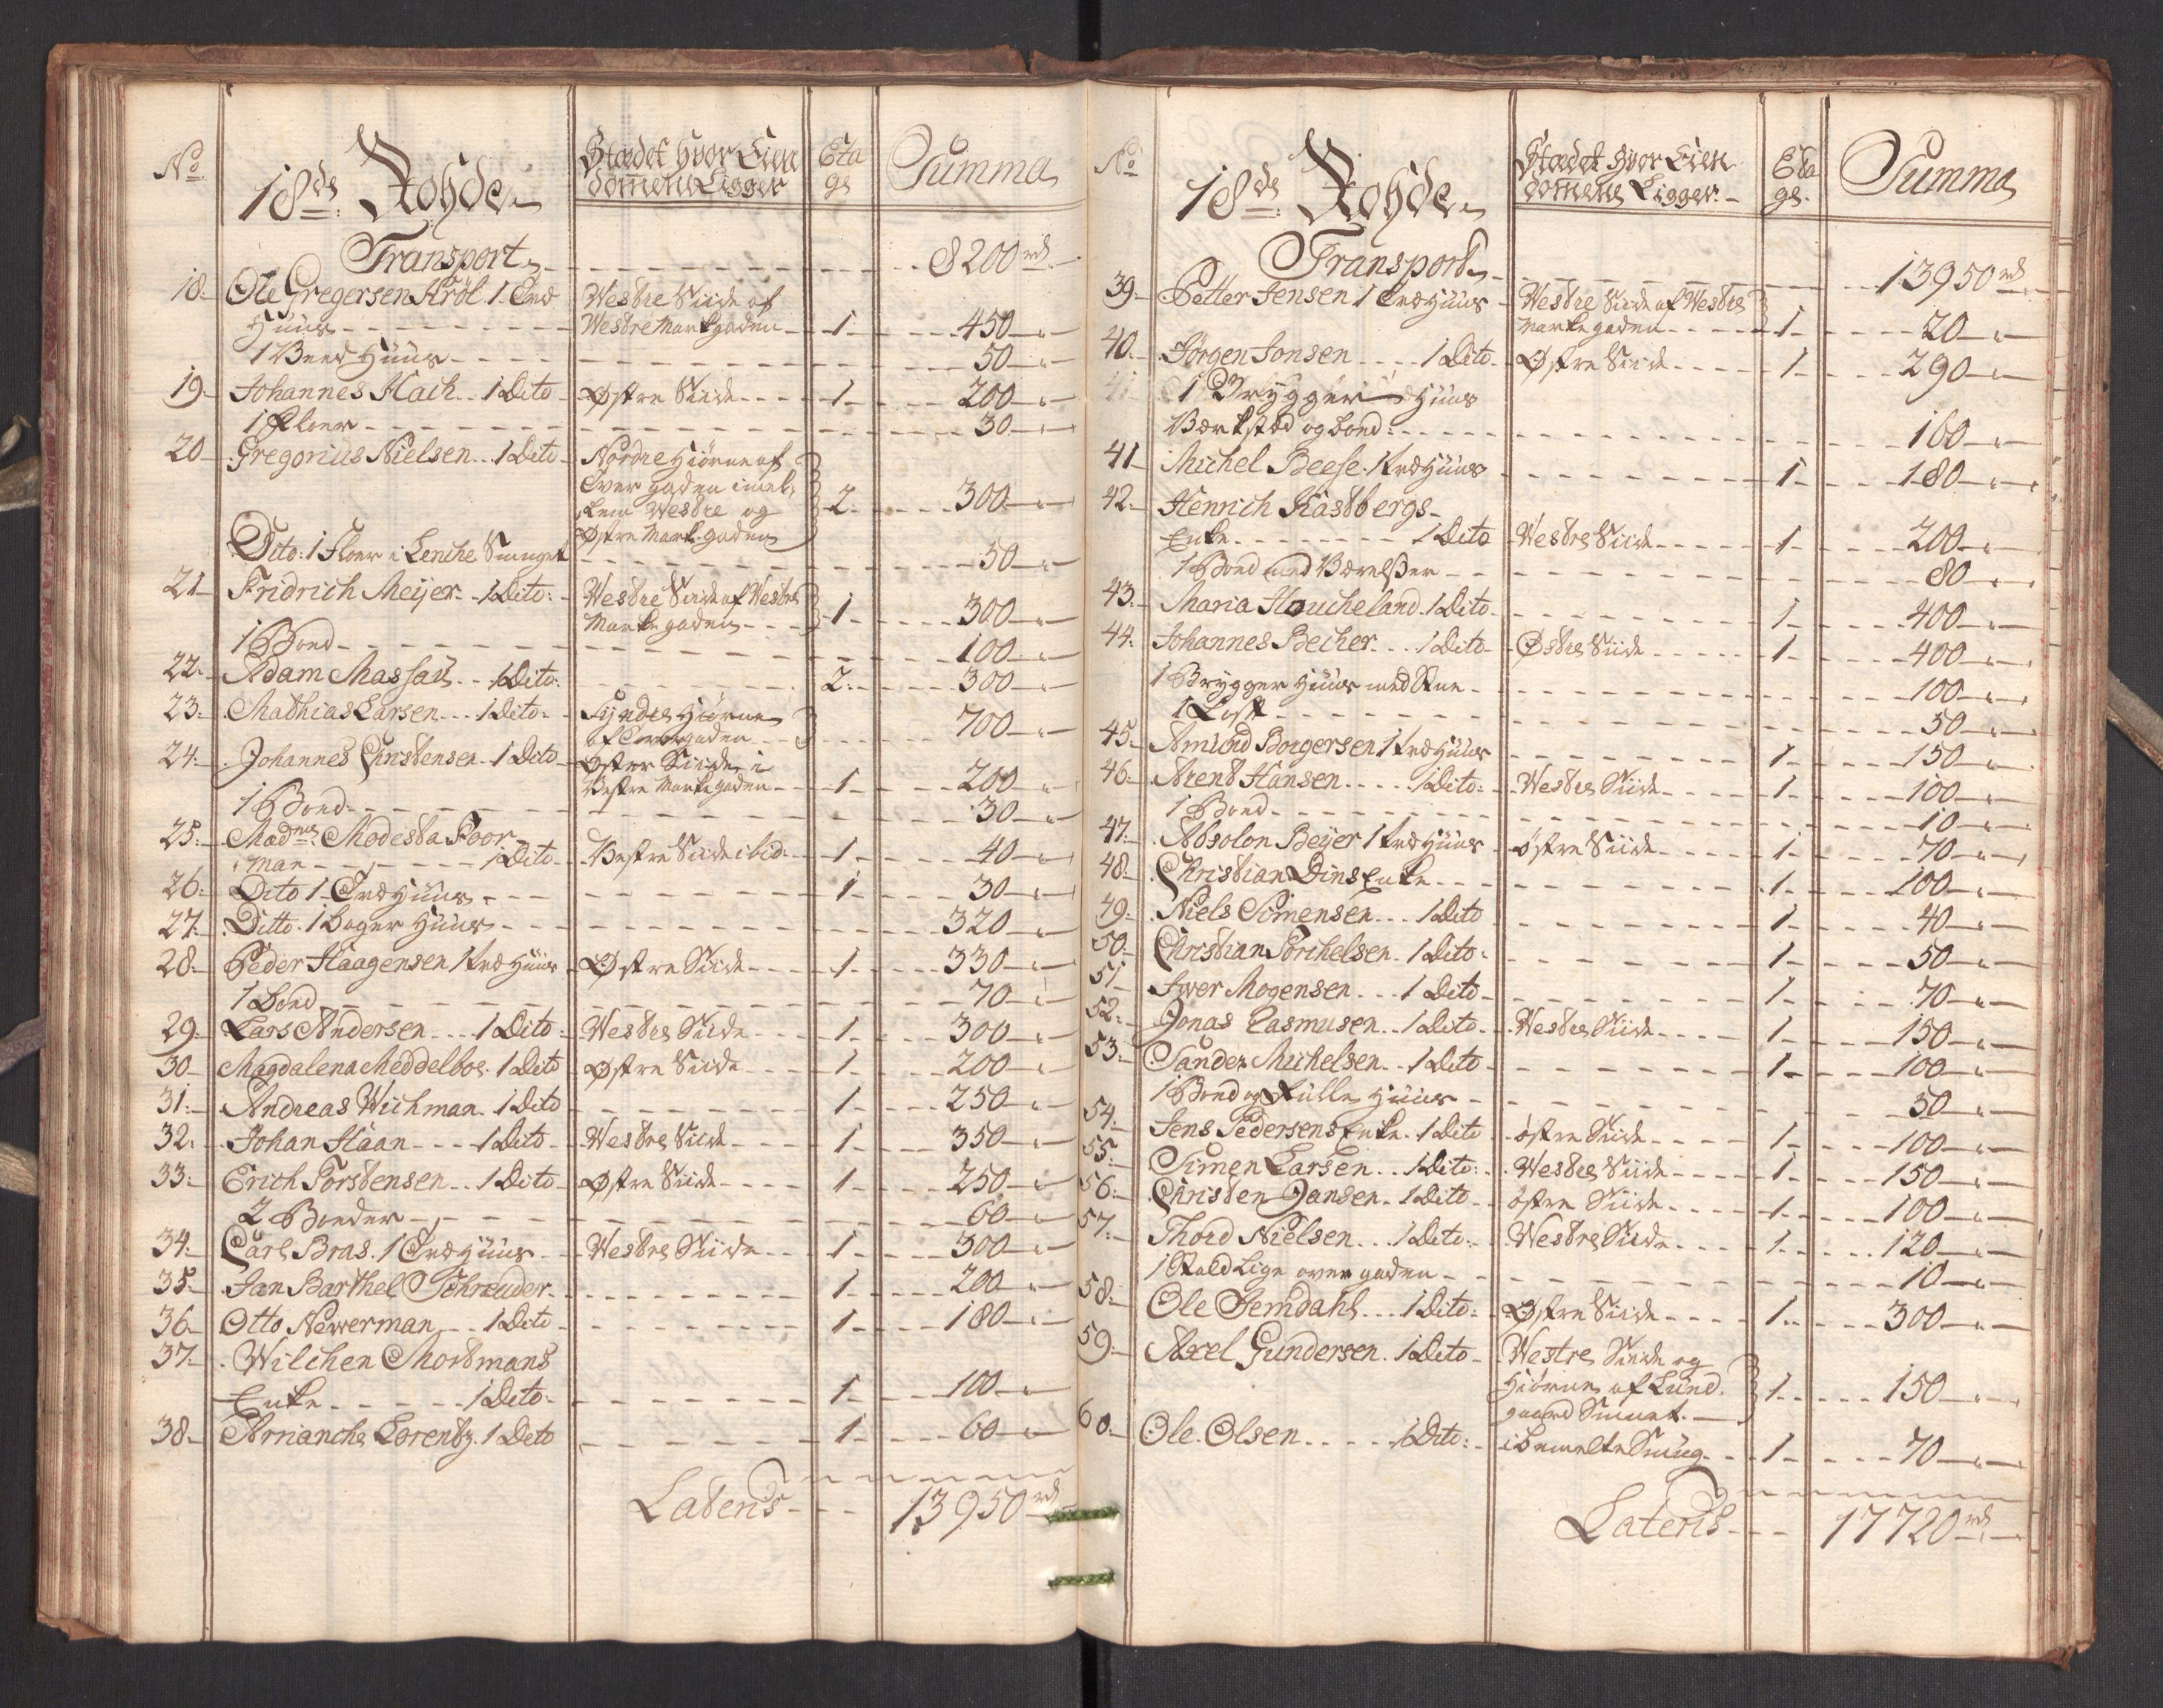 No.
18de: Rohde
Stædet hvor Eien
dommene Ligger
Eta
ge
Summa
Transport - - - 8200 rd
18. Ole Gregersen Krøl 1 Træ Westre Siide af
Huus - - - Westre Markegaden - 1 - 450
1 Baad Huus - - - 50
19. Johannes Hach 1 Dito Østre Siide - 1 - 200
1 Floer - - - 30
20 Gregorius Nielsen 1 Dito Nordre Hiørne af
Tver gaden imel-
lem Westre og - 2 - 300
Østre Marke gaden
Dito 1 Floer i Lenche Smuget - - - 50
21 Fridrich Meijer 1 Dito: Westre Siide af Westre
Marke gaden - 1 - 300
1 Boed - - - 100
22. Adam Massau 1 Dito: - 2 - 300
23. Mathias Larsen 1 Dito: Syndre Hiørne
af Tvergaden - 700
24. Johannes Christensen 1 Dito Østre Siide i
Vestre Markegaden - 1 - 200
1 Boed - - - 30
25. Madme Modesta Foor
man 1 Dito Vestre Siide ibid: - 1 - 40
26. Dito 1 Træ Huus - 1 - 30
27. Ditto 1 Bager Huus - - - 320
28. Peder Haagensen 1 Træ Huus Østre Siide - 1 - 330
1 Boed - - - 70
29. Lars Andersen 1 Dito: Westre Siide - 1 - 300
30 Magdalena Meddelboe 1 Dito Østre Siide - 1 - 200
31. Andreas Wichman 1 Dito - 1 - 250
32. Johan Haan 1 Dito Westre Siide - 1 - 350
33. Erich Torstensen 1 Dito Østre Siide - 1 - 250
2 Boeder - - - 60
34. Carl Bras 1 Træ Huus Westre Siide - 1 - 300
35. Jan Barthel Schreuder - 1 - 200
36. Otto Newerman 1 Dito - 1 - 180
37. Wilchen Mortmans
Enke 1 Dito: - 1 - 100
38. Arrianche Lorentz 1 Dito - 1 - 60
Lateris - - - 13950 rd
No
18de: Rohde
Stædet hvor Eien
domene Ligger
Eta
ge.
Summa
Transport - - - 13950 rd
39. Petter Jensen 1 Træ Huus Westre Siide af Westre
Markegaden - 1 - 20
40. Jørgen Jonsen 1 Dito Østre Siide - 1 - 290
1 Brygger Huus
Værksted og boed: - - - 160
41 Michel Beese 1 Træ Huus - 1 - 180
42. Henrich Kastbergs
Enke 1 Dito Westre Siide - 1 - 200
1 Boed med Værelser - - - 80
43. Maria Houcheland 1 Dito - 1 - 400
44. Johannes Becher 1 Dito Østre Siide - 1 - 400
1 Brygger Huus med Stue - - - 100
1 Loft - - - 50
45. Amund Borgersen 1 Træ Huus - 1 - 150
46. Arent Hansen 1 Dito: Westre Siide - 1 - 100
1 Boed - - - 10
47. Absolon Beijer 1 Træ Huus Østre Siide - 1 - 70
48. Christian Dins Enke - 1 - 100
49. Niels Simensen 1 Dito - 1 - 40
50. Christian Torchelsen 1 Dito: - 1 - 50
51 Iver Mogensen 1 Dito - 1 - 70
52. Jonas Rasmusen 1 Dito Westre Siide - 1 - 150
53. Sander Michelsen 1 Dito - 1 - 100
1 Boed og Rulle Huus - - - 50
54. Jens Pedersens Enke 1 Dito Østre Siide - 1 - 100
55. Simen Larsen 1 Dito: Westre Siide - 1 - 150
56. Christen Jansen 1 Dito Østre Siide - 1 - 100
57. Thord Nielsen 1 Dito: Westre Siide - 1 - 120
1 Stald Lige over gaden - - - 10
58. Ole Jemdahl 1 Dito: Østre Siide - 1 - 300
59. Axel Gundersen 1 Dito Westre Siide og
Hiørne af Lund-
gaard Smuet - 1 - 150
60. Ole Olsen 1 Dito: i bemelte Smug - 1 - 70
Lateris - - - 17720 rd